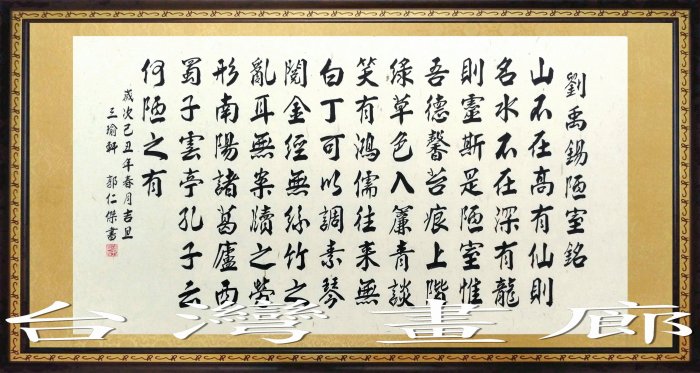 劉禹錫陋室銘
山不在高有仙則
名水不在深有龍
則靈斯是陋室惟
吾德馨苔痕上階
綠草色入簾青談
笑有鴻儒往來無
白丁可以調素琴
閱金經無絲竹之
亂耳無案牘之勞
形南陽諸葛廬西
蜀子雲亭孔子云
何陋之有
歲次己丑年春月吉旦
三瑜軒 郭仁傑書
台灣畫廊